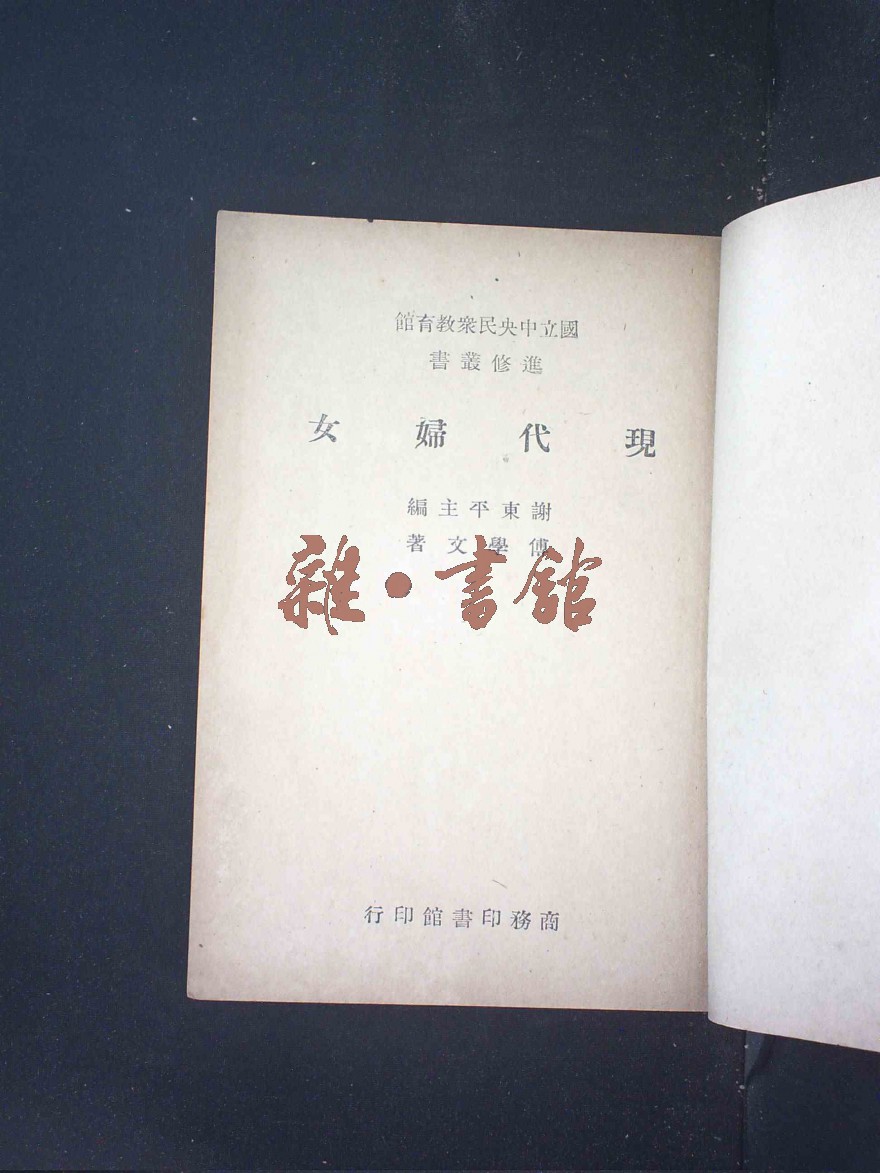 國立中央民衆教育館
進修叢書
現代婦女
謝東平主編
傅學文著
雜·書館
商務印書館印行